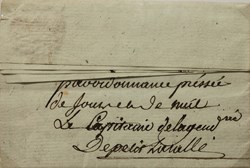 par ordonnance pressée
de jour et de nuit
Le Capitaine de la gend
De petit